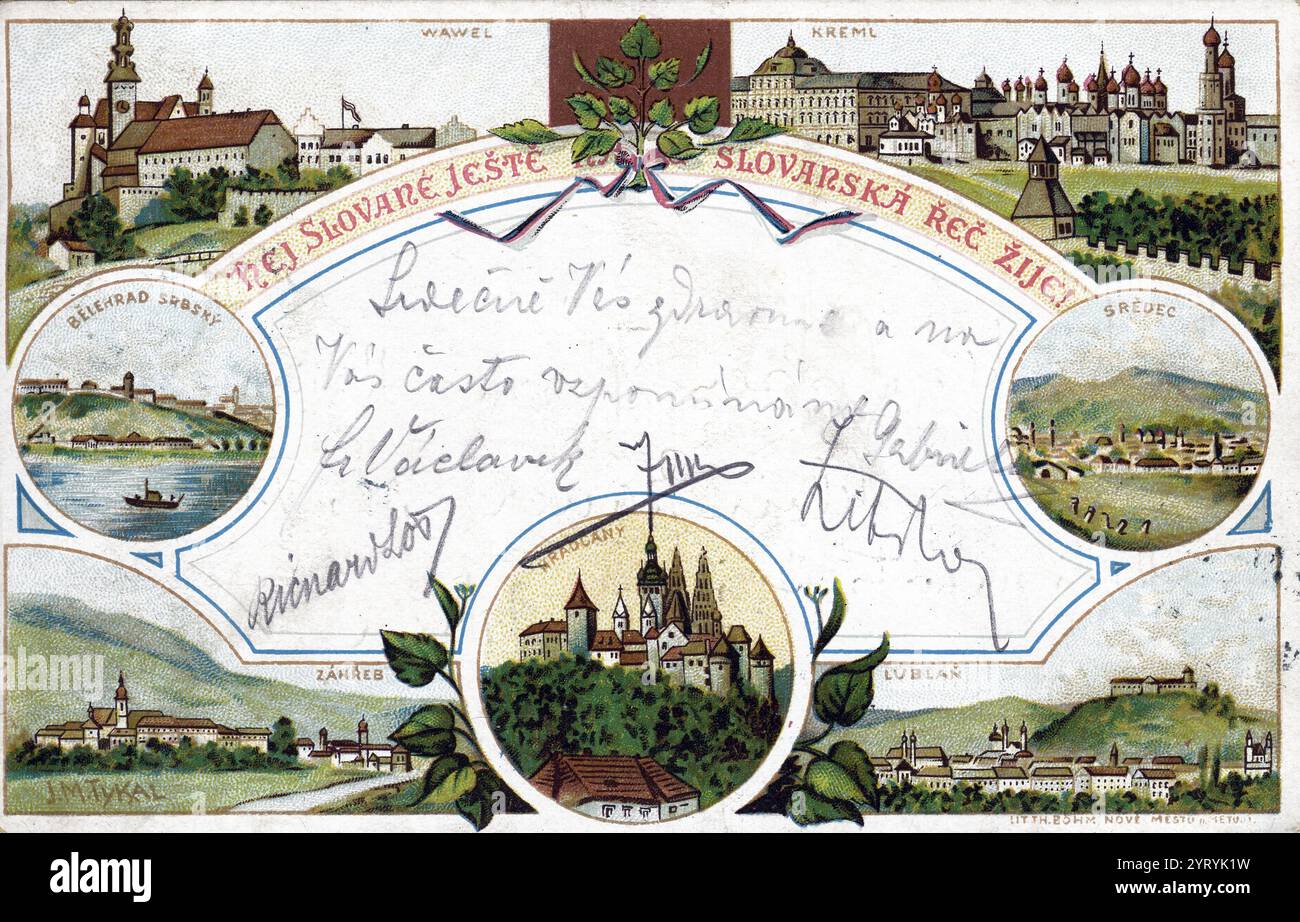 WAWEL
KREML
HEJ SLOVANÉ JEŠTĚ SLOVANSKÁ ŘEČ ŽIJE!
BĚLEHRAD SRBSKÝ
SRĚDEC
Srdečně Vás zdravíme a na
Vás často vzpomínáme
Václavek
HRADČANY
ZÁHŘEB
LUBLAŇ
J.M. TYKAL
LIT. TH. BÖHM, NOVÉ MĚSTO n. METUJÍ.
alamy
Image ID: 2YRYK1W
www.alamy.com